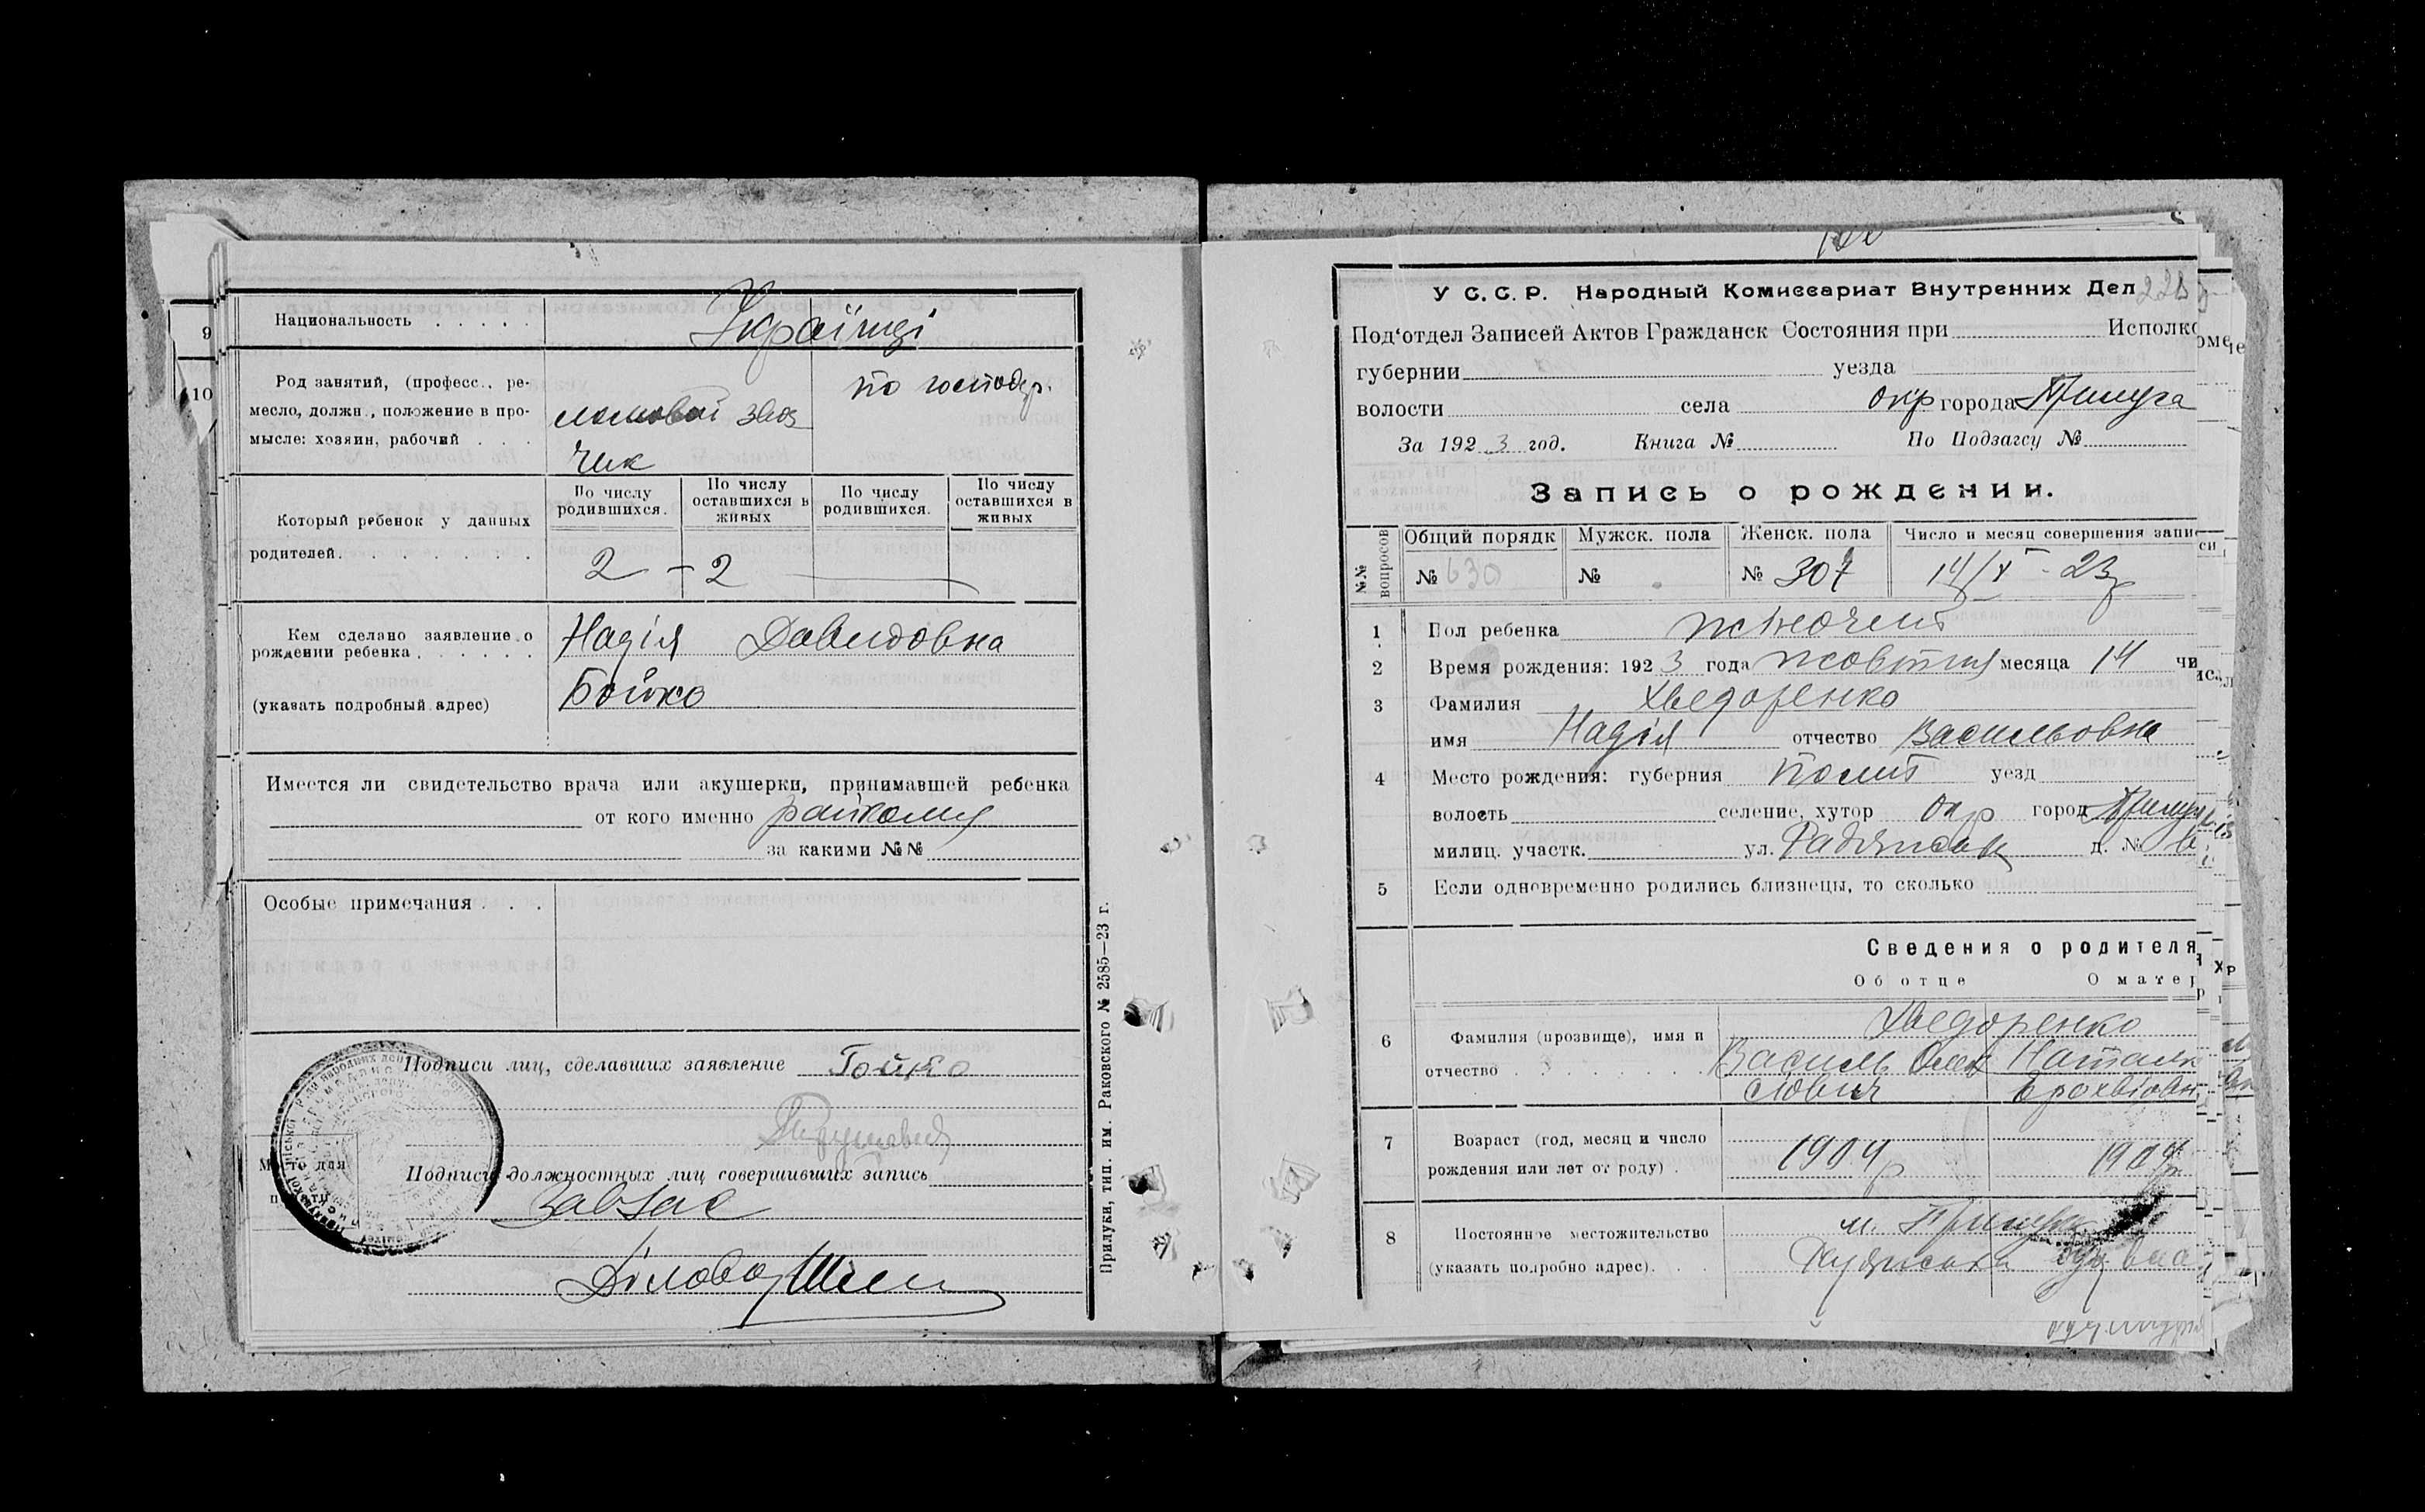 9
Национальность . . . . .
Українці
10
Род занятий, (професс., ре-
месло, должн., положение в про-
мысле: хозяин, рабочий . . .
ломовой звоз
чик
по господр.
Который ребенок у данных
родителей. . . . . . .
По числу
родившихся.
По числу
оставшихся в
живых
По числу
родившихся.
По числу
оставшихся в
живых
2 – 2
Кем сделано заявление о
рождении ребенка . . . . . .
(указать подробный адрес)
Надія Давидовна
Бойко
Имеется ли свидетельство врача или акушерки, принимавшей ребенка
от кого именно
за какими №№
Особые примечания . . .
Подписи лиц, сделавших заявление
Место для
печати
Подписи должностных лиц совершивших запись
Завзас
Діловод
Прилуки, тип. им. Раковского № 2585—23 г.
У С. С. Р. Народный Комиссариат Внутренних Дел
Под'отдел Записей Актов Гражданск Состояния при Исполко
губернии уезда
волости села окр города Прилуга
За 192 3 год. Книга № По Подзагсу №
Запись о рождении.
№№
вопросов
Общий порядк
№ 630
Мужск. пола
№
Женск. пола
№ 307
Число и месяц совершения запи
14/X - 23
1 Пол ребенка жіночип
2 Время рождения: 192 3 года жовтня месяца 14 чи
3 Фамилия Хведоренко
имя Надія отчество Васильовна
4 Место рождения: губерния Полт уезд
волость селение, хутор окр город Прилуки
милиц. участк. ул. Радянськ д. №
5 Если одновременно родились близнецы, то сколько
Сведения о родителя
Об отце О матер
6 Фамилия (прозвище), имя и
отчество . . . . . . . .
Хведоренко
Василь Олек
сіович
Наталк
7 Возраст (год, месяц и число
рождения или лет от роду) .
1904 р
1904
8 Постоянное местожительство
(указать подробно адрес). . .
м. Прилуки